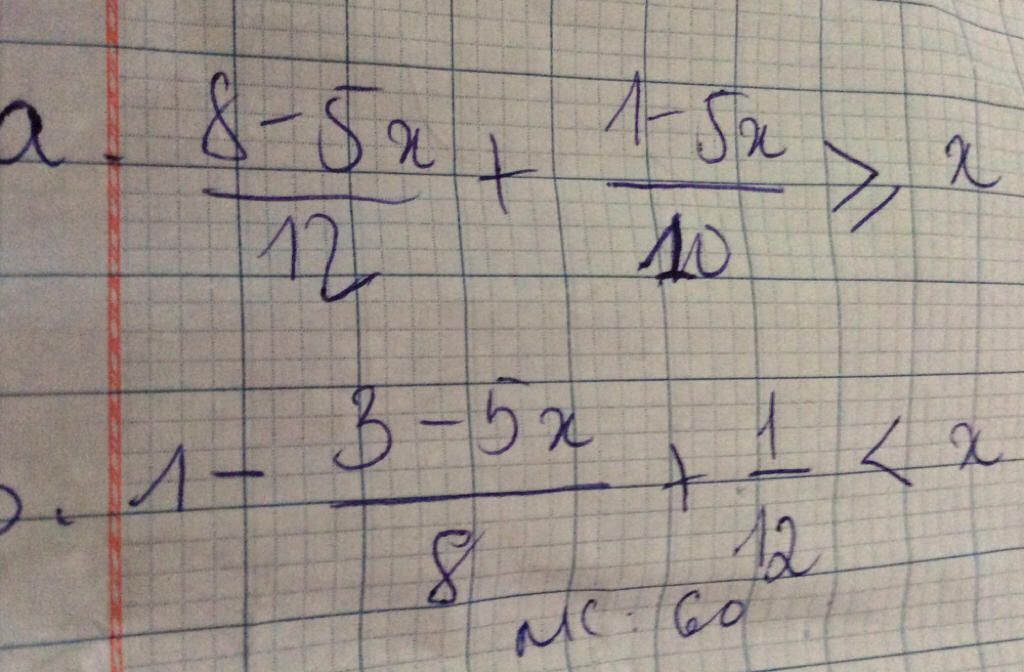 a. (8-5x)/12 + (1-5x)/10 ⩾ x
b. 1 - (3-5x)/8 + 1/12 < x
MC: 60